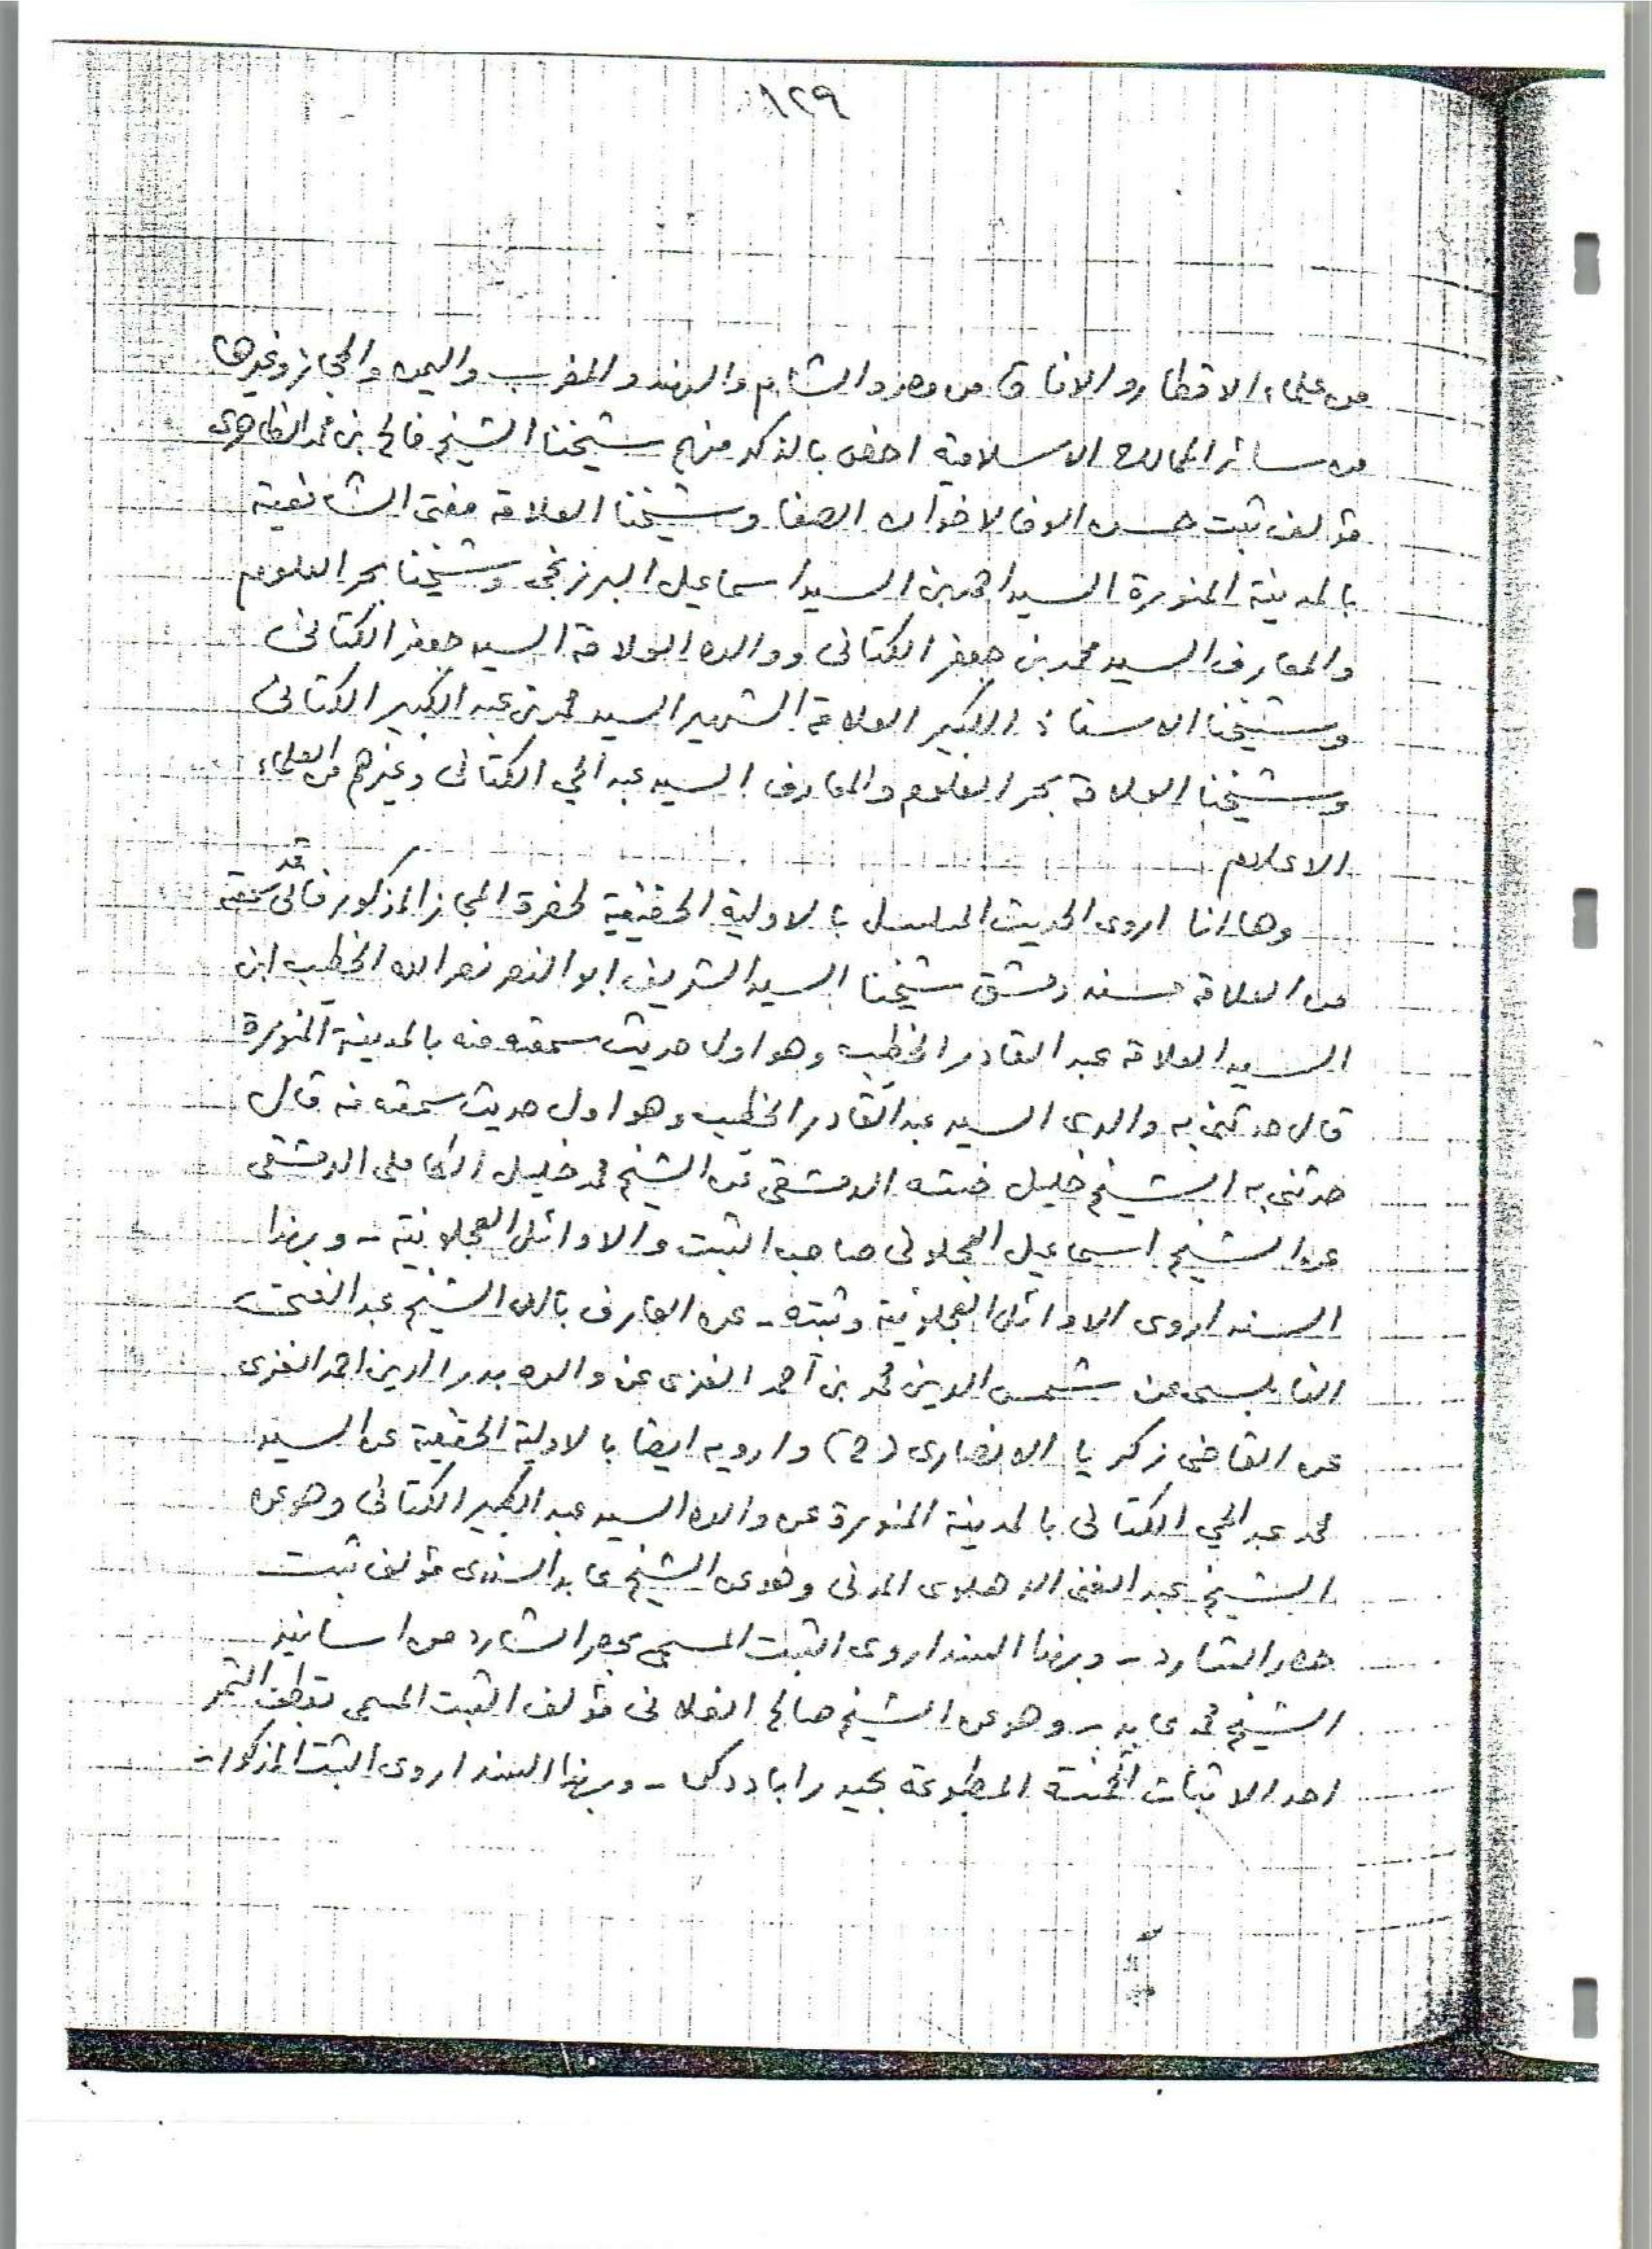 ١٢٩
من علماء الاقطار والافاق من مصر والشام والهند والمغرب واليمن والحجاز وغيرها
من سائر الممالك الاسلامية اخص بالذكر منهم شيخنا الشيخ فالح بن محمد الظاهرى
مؤلف ثبت حسن الوفا لاخوان الصفا وشيخنا العلامة مفتى الشافعية
بالمدينة المنورة السيد احمد بن السيد اسماعيل البرزنجى وشيخنا بحر العلوم
والمعارف السيد محمد بن جعفر الكتانى ووالده العلامة السيد جعفر الكتانى
وشيخنا الاستاذ الكبير العلامة الشهير السيد محمد بن عبد الكبير الكتانى
وشيخنا العلامة بحر العلوم والمعارف السيد عبد الحي الكتانى وغيرهم من العلماء
الاعلام
وها انا اروى الحديث المسلسل بالاولية الحقيقية لحضرة المجاز المذكور فانى قد سمعته
من العلامة مسند دمشق شيخنا السيد الشريف ابو النصر نصر الله الخطيب ابن
السيد العلامة عبد القادر الخطيب وهو اول حديث سمعته منه بالمدينة المنورة
قال حدثنى به والدى السيد عبد القادر الخطيب وهو اول حديث سمعته منه قال
حدثنى به الشيخ خليل خشه الدمشقى عن الشيخ محمد خليل الكاملى الدمشقى
عن الشيخ اسماعيل العجلونى صاحب الثبت والاوائل العجلونية - وبهذا
السند اروى الاوائل العجلونية وثبته - عن العارف بالله الشيخ عبد الغنى
النابلسى عن شمس الدين محمد بن أحمد الغزى عن والده بدر الدين احمد الغزى
عن القاضى زكريا الانصارى (ح) وارويه ايضا بالاولية الحقيقية عن السيد
محمد عبد الحي الكتانى بالمدينة المنورة عن والده السيد عبد الكبير الكتانى وهو عن
الشيخ عبد الغنى الدهلوى المدنى وهو عن الشيخ عابد السندى مؤلف ثبت
حصر الشارد - وبهذا السند اروى الثبت المسمى بحصر الشارد من اسانيد
الشيخ محمد عابد - وهو عن الشيخ صالح الفلانى مؤلف الثبت المسمى بقطف الثمر
احد الاثبات الخمسة المطبوعة بحيدراباد دكن - وبهذا السند اروى الثبت المذكور